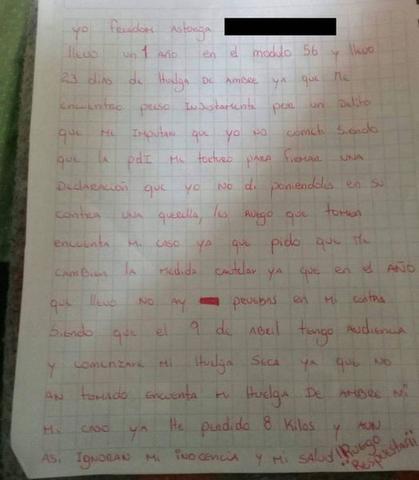 yo Feradors Astorga
llevo un 1 año en el modulo 56 y llevo
23 dias de Huelga De Ambre ya que me
encuentro preso Injustamente por un Delito
que me Imputan que yo no cometi siendo
que la pdI me torturo para firmar una
Declaración que yo no di poniendoles en su
contra una querella, les Ruego que tomen
encuenta mi caso ya que pido que me
cambien la medida cautelar ya que en el AÑO
que llevo no Ay pruebas en mi contra
siendo que el 9 de Abril tengo Audiencia
y comenzare mi Huelga Seca ya que no
An tomado encuenta mi Huelga De Ambre ni
mi caso ya He perdido 8 Kilos y Aun
Asi Ignoran mi inocencia y mi salud
!!Ruego
Respuestas!!